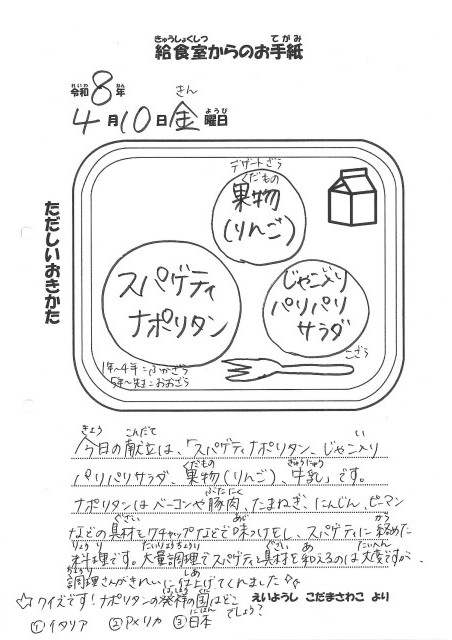 給食室からのお手紙
令和8年
4月10日金曜日
ただしいおきかた
デザートざら
果物
(りんご)
スパゲティ
ナポリタン
じゃこ入り
パリパリ
サラダ
こざら
1年~4年:ふかざら
5年~先生:おおざら
今日の献立は、「スパゲティナポリタン、じゃこ入り
パリパリサラダ、果物(りんご)、牛乳」です。
ナポリタンはベーコンや豚肉、たまねぎ、にんじん、ピーマン
などの具材とケチャップなどで味つけをし、スパゲティに絡めた
料理です。大量調理でスパゲティと具材を和えるのは大変ですが、
調理さんがきれいに仕上げてくれました
☆クイズです!ナポリタンの発祥の国はどこでしょう?
えいようし こだまさわこ より
①イタリア ②アメリカ ③日本